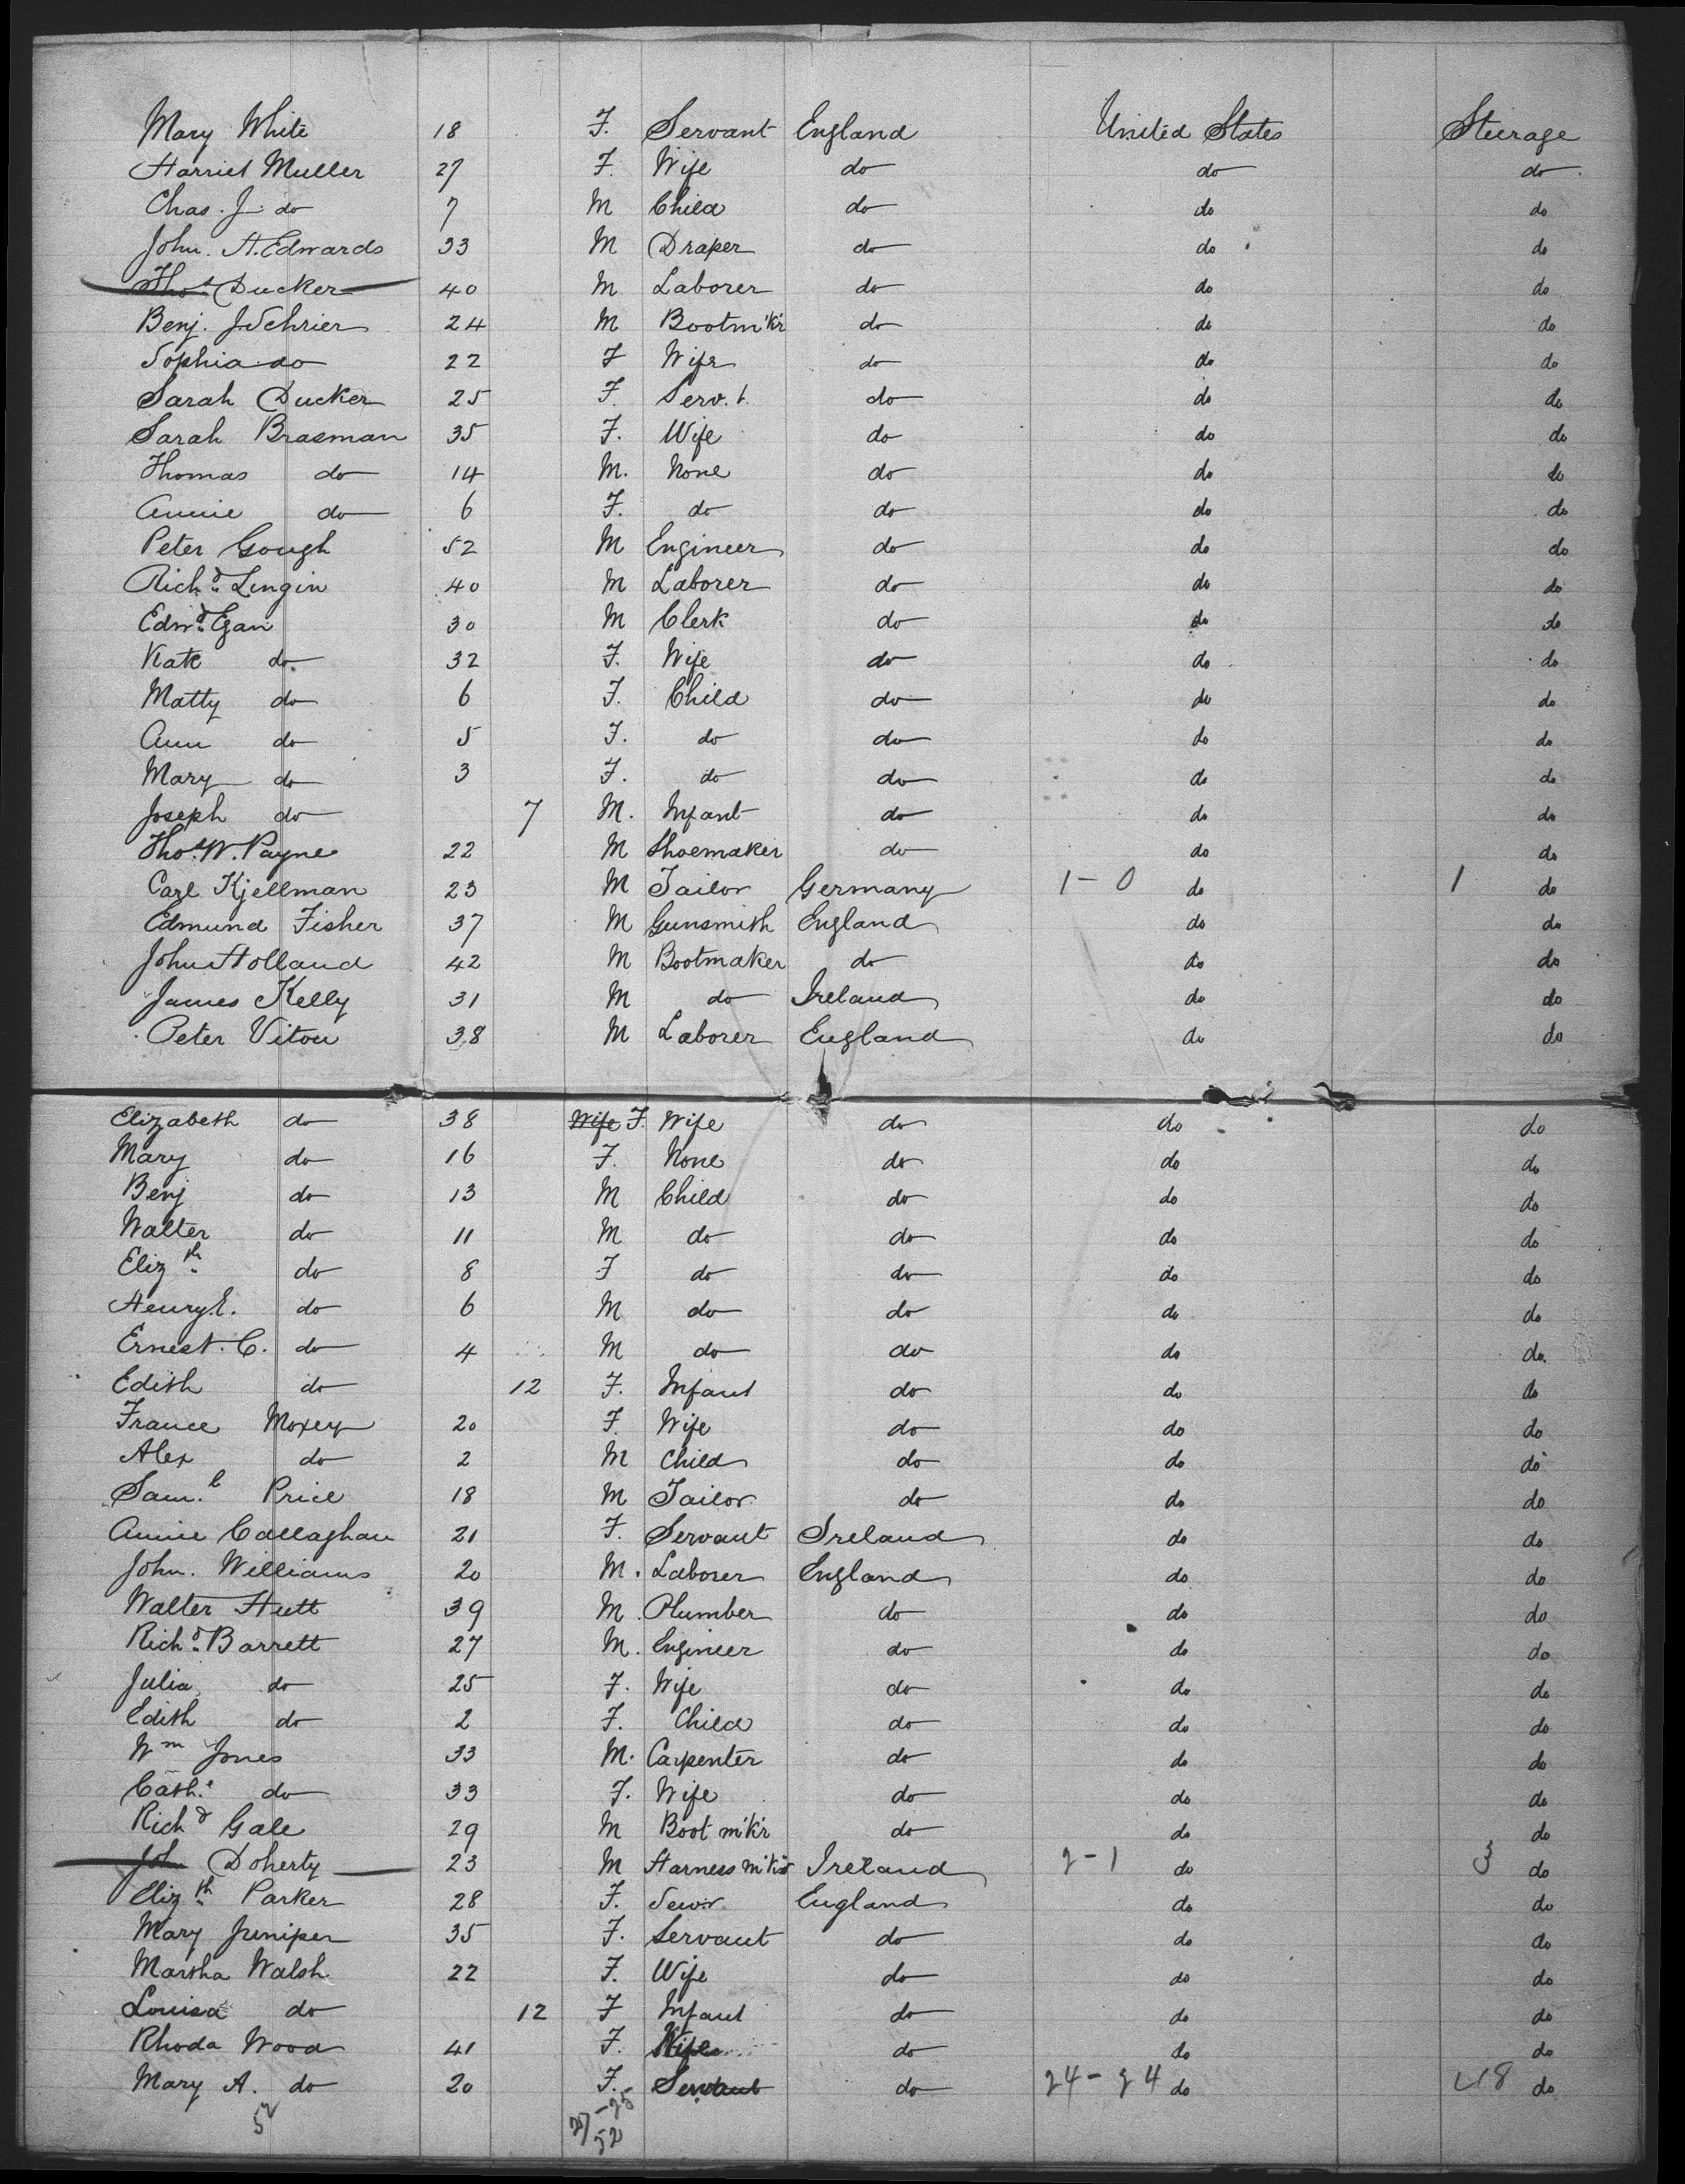 Mary White 18 F. Servant England United States Steerage
Harriet Muller 27 F. Wife do do do
Chas. J. do 7 M Child do do do
John. H. Edwards 33 M Draper do do do
Thos Ducker 40 M Laborer do do do
Benj. J Schrier 24 M Bootm'k'r do do do
Sophia do 22 F Wife do do do
Sarah Ducker 25 F. Serv.t. do do do
Sarah Brasman 35 F. Wife do do do
Thomas do 14 M. None do do do
Annie do 6 F. do do do do
Peter Gough 52 M Engineer do do do
Richd. Lingin 40 M Laborer do do do
Edwd. Egan 30 M Clerk do do do
Kate do 32 F. Wife do do do
Matty do 6 F. Child do do do
Ann do 5 F. do do do do
Mary do 3 F. do do do do
Joseph do 7 M. Infant do do do
Thos. W. Payne 22 M Shoemaker do do do
Carl Kjellman 23 M Tailor Germany 1-0 do 1 do
Edmund Fisher 37 M Gunsmith England do do
John Holland 42 M Bootmaker do do do
James Kelly 31 M do Ireland do do
Peter Vitou 38 M Laborer England do do
Elizabeth do 38 Wife F. Wife do do do
Mary do 16 F. None do do do
Benj do 13 M Child do do do
Walter do 11 M do do do do
Elizth. do 8 F do do do do
Henry. E. do 6 M do do do do
Ernest. C. do 4 M do do do do.
Edith do 12 F. Infant do do do
France Moxey 20 F. Wife do do do
Alex do 2 M Child do do do
Saml. Price 18 M Tailor do do do
Annie Callaghan 21 F. Servant Ireland do do
John. Williams 20 M. Laborer England do do
Walter Hutt 39 M. Plumber do do do
Richd. Barrett 27 M. Engineer do do do
Julia do 25 F. Wife do do do
Edith do 2 F. Child do do do
Wm Jones 33 M. Carpenter do do do
Cathe. do 33 F. Wife do do do
Richd Gale 29 M Boot m'k'r do do do
Joh Doherty 23 M Harness m'k'r Ireland 2-1 do 3 do
Elizth. Parker 28 F. England do do
Mary Juniper 35 F. Servant do do do
Martha Walsh 22 F. Wife do do do
Louisa do 12 F Infant do do do
Rhoda Wood 41 F. Wife do do do
Mary A. do 20 F. Servant do 24-24 do 48 do
52 27-25
52